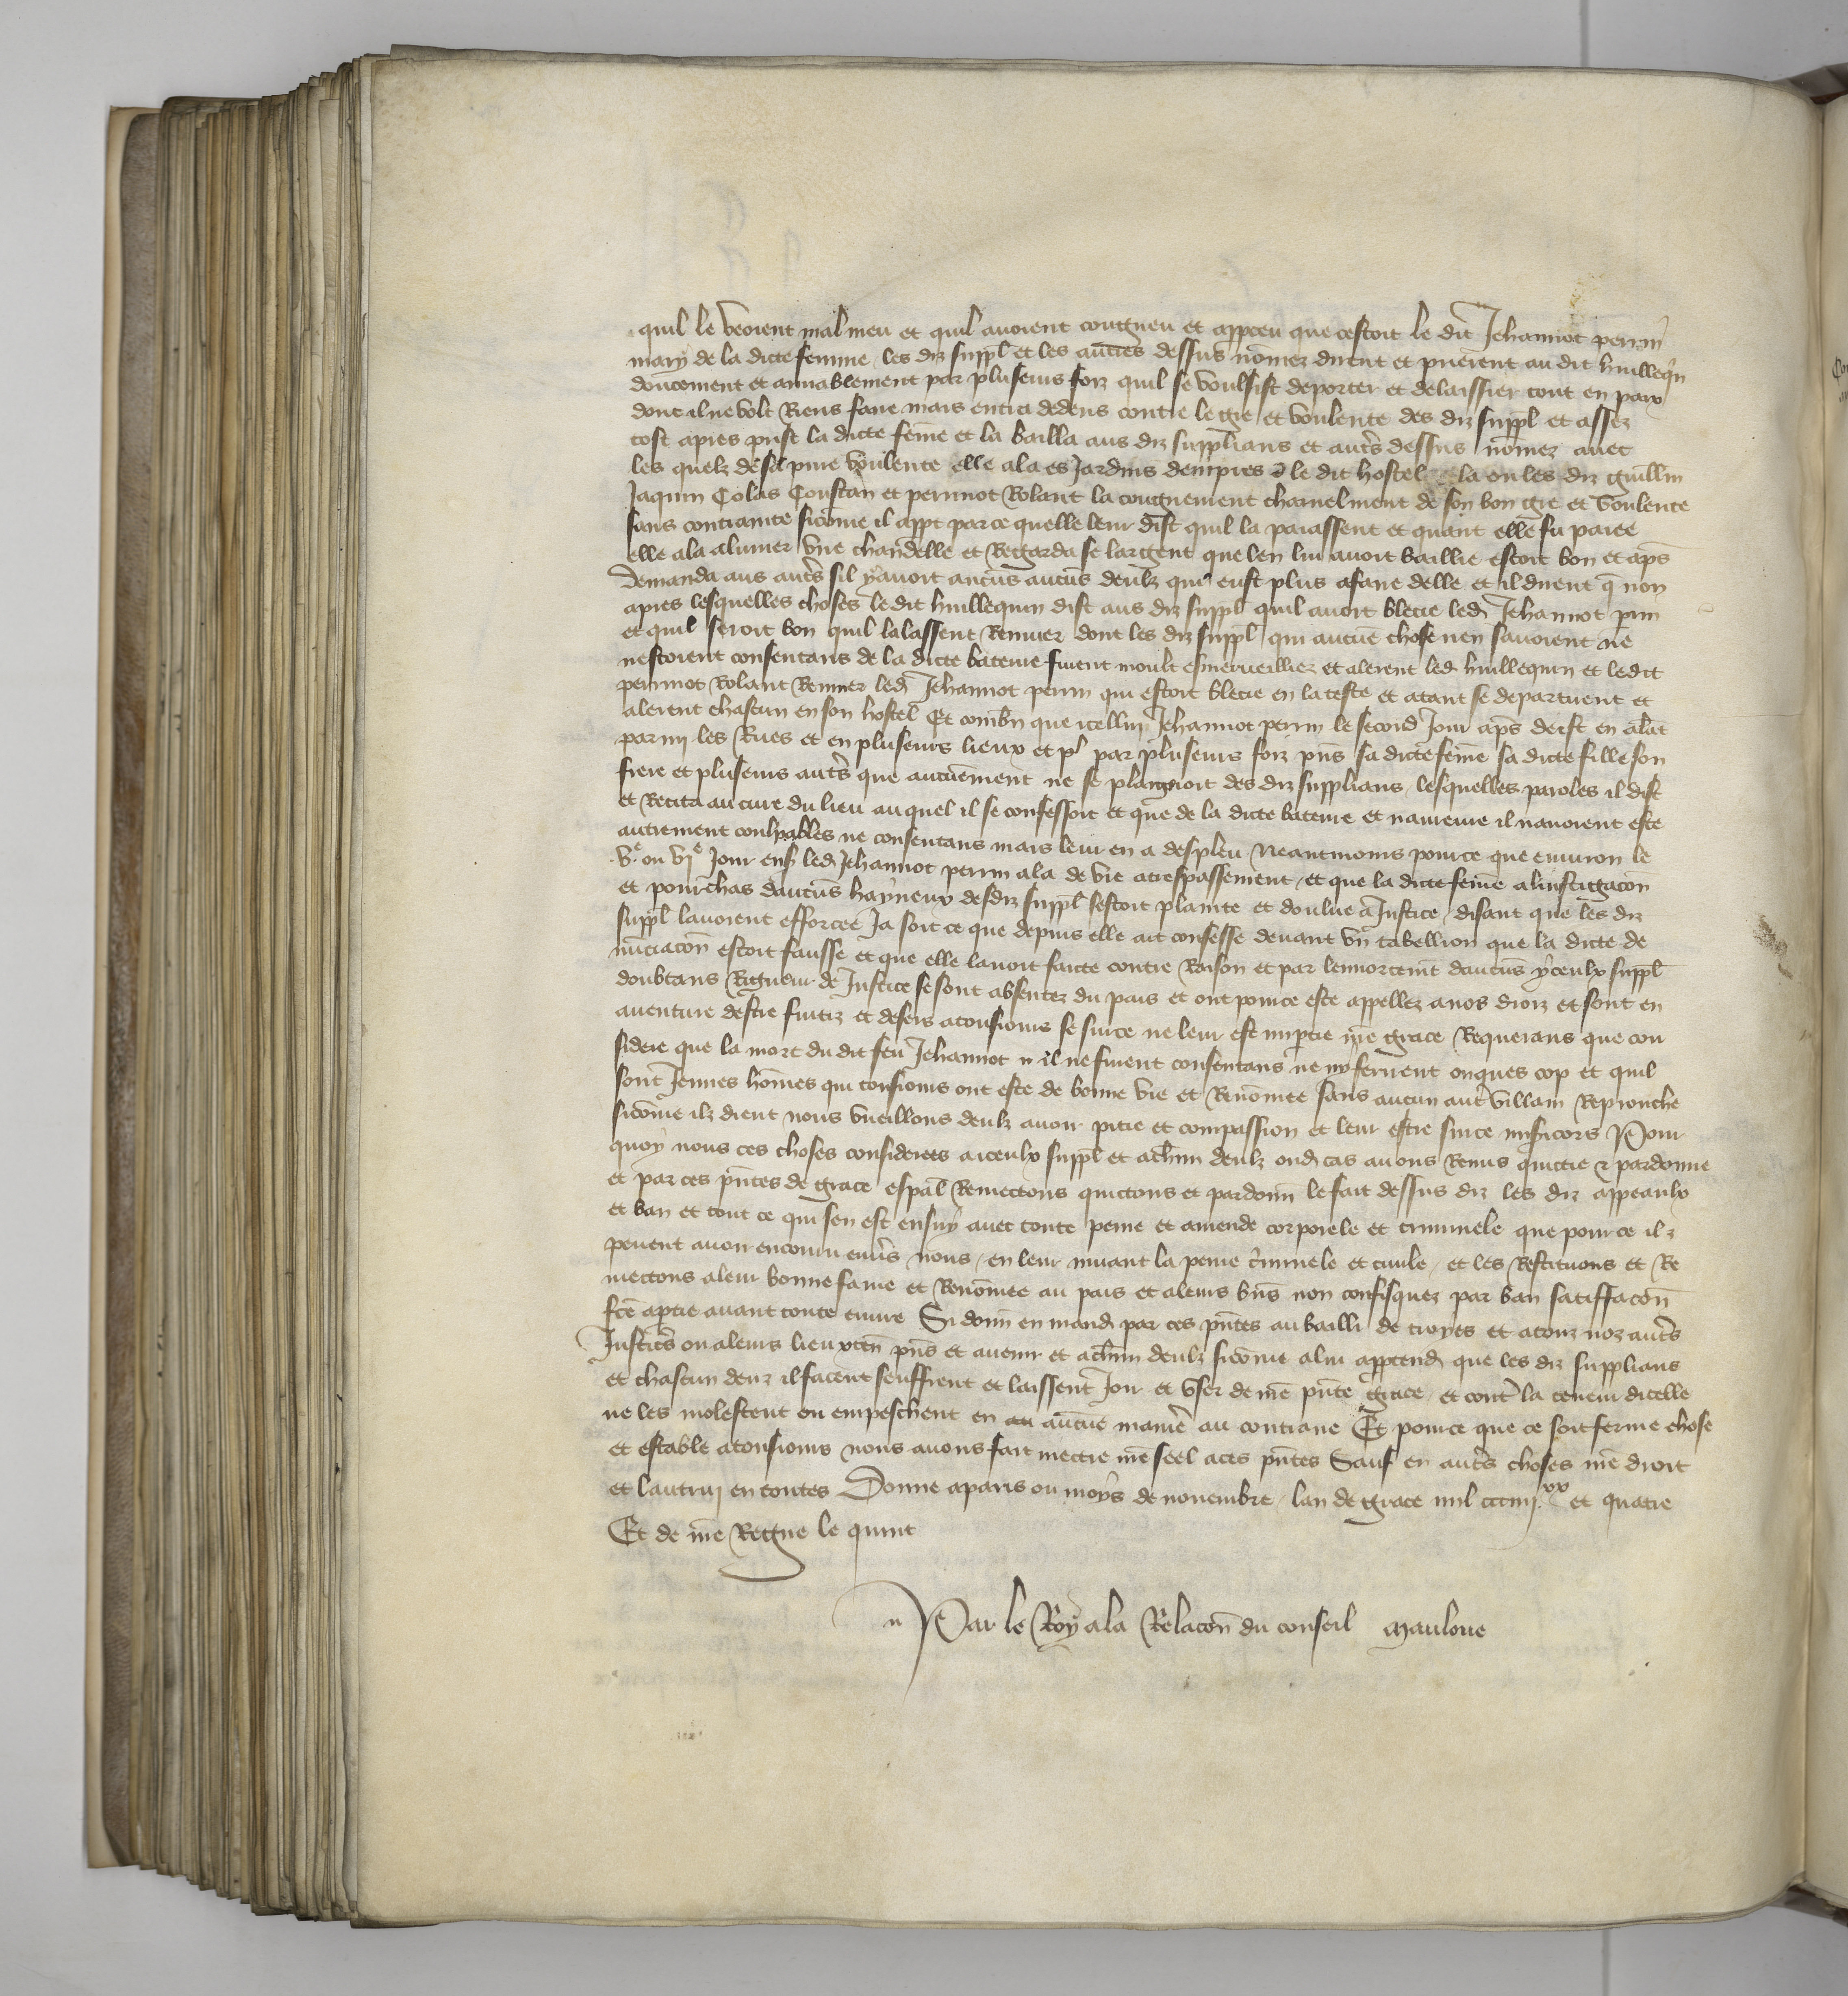 quil le veoient mal meu et quil auoient congneu et appceu que cestoit le dit Jehannot perrin
mary de la dicte femme les diz suppl et les autres dessus nomez dirent et prierent au dit huillequin
doucement et amiablement par pluseurs foiz quil se voulsist deporter et delaissier tout en paix
dont il ne volt Riens faire mais entra dedens contre le gre et voulente des diz suppl et assez
tost apres prist la dicte feme et la bailla aus diz supplians et autrs dessus nomez auec
les quelz de sa pure voulente elle ala es Jardins dempres le dit hostel la ou les diz guillin
Jaquin Colas Constan et perrinot Rolant la congneurent charnelment de son bon gre et voulente
sans contrainte sicome il appt par ce quelle leur dist quil la paiassent et quant elle fu paiee
elle ala alumer vne chandelle et Regarda se largent que len lui auoit baillie estoit bon et aps
demanda aus autrs sil y auoit aucuns deulz qui eust plus afaire delle et il dirent q non
apres lesquelles choses le dit huillequin dist aus diz suppl quil auoit blecie led Jehannot prin
et quil seroit bon quil lalassent Remuer dont les diz suppl qui aucune chose nen sauoient ne
nestoient consentans de la dicte bateure furent moult esmerueilliez et alerent led huillequin et ledit
perrinot Rolant Remuer led Jehannot perrin qui estoit blecie en la teste et atant se departirent et
alerent chascun en son hostel Et combn que icellui Jehannot perrin le second Jour aps deist en alat
parmi les Rues et en pluseurs lieux et par pluseurs foiz pns sa dicte feme sa dicte fille son
frere et pluseurs autrs que aucunement ne se plaignoit des diz supplians lesquelles paroles il dist
et Recita au cure du lieu auquel il se confessoit et que de la dicte bateure et naureure il nauoient este
autrement coulpables ne consentans mais leur en a despleu Neantmoins pource que enuiron le
ve ou vie Jour ens led Jehannot perrin ala de vie a trespassement et que la dicte feme a linstigacon
et pourchas daucuns hayneux desdiz suppl sestoit plainte et doulue a Justice disant que les diz
suppl lauoient efforcee Ja soit ce que depuis elle ait confesse deuant vn tabellion que la dicte de
nunciacon estoit fausse et que elle lauoit faicte contre Raison et par lenhortemt daucuns yceulx suppl
doubtans Rigueur de Justice se sont absentez du pais et ont pource este appellez a nos droiz et sont en
auenture destre fuitiz et desers a tousiours se sur ce ne leur est impartie nre grace Requerans que con
sidere que la mort du dit feu Jehannot il ne furent consentans ne ny ferirent onques cop et quil
sont Jeunes homes qui tousiours ont este de bonne vie et Renomee sans aucun autr villain Reprouche
sicome ilz dient nous vueillons deulz auoir pitie et compassion et leur estre sur ce misicors Pour
quoy nous ces choses considerees a iceulx suppl et a chun deulz oud cas auons Remis quictie et pardonne
et par ces pntes de grace espal Remectons quictons et pardonn le fait dessus diz les diz appeaulx
et ban et tout ce qui sen est ensuy auec toute peine et amende corporele et criminele que pour ce ilz
peuent auoir encouru enuers nous en leur muant la peine criminele et ciuile et les Restituons et Re
mectons a leur bonne fame et Renomee au pais et a leurs bns non confisquez par ban satiffacon
fcte a ptie auant toute euure Si donn en mand par ces pntes au bailli de troyes et a touz noz autrs
Justicrs ou a leurs lieuxten pns et auenir et a chun deulz sicome a lui apptend que les diz supplians
et chascun deuz il facent seuffrent et laissent Joir et vser de nre pnte grace et contr la teneur dicelle
ne les molestent ou empeschent en aucune manier au contraire Et pource que ce soit ferme chose
et estable a tousiours nous auons fait mectre nre seel a ces pntes Sauf en autrs choses nre droit
et lautrui en toutes Donne a paris ou moys de nouembre lan de grace mil ccciiijxx et quatre
Et de nre Regne le quint
Par le Roy a la Relacon du conseil Mauloue